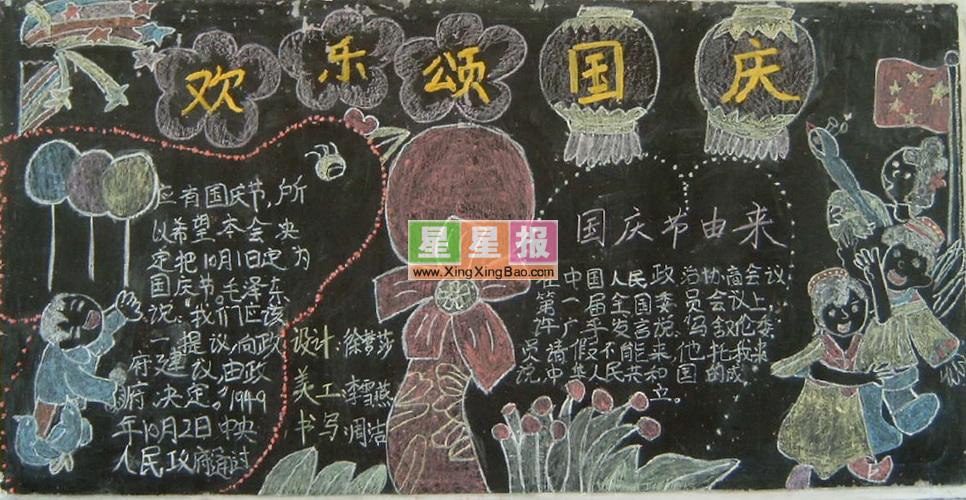 欢乐颂国庆
国庆节由来
在中国人民政治协商会议
第一届全国委员会议上,
许广平发言说,马叙伦委
员请假不能来,他托我来
说中华人民共和国的成
立。
应有国庆节,所
以希望本会决
定把10月1日定为
国庆节。毛泽东
说:"我们应该
一提议,向政
府建议,由政
府决定。"1949
年10月2日中央
人民政府通过
设计:徐梦莎
美工:李雪燕
书写:周洁
星星报
www.XingXingBao.com